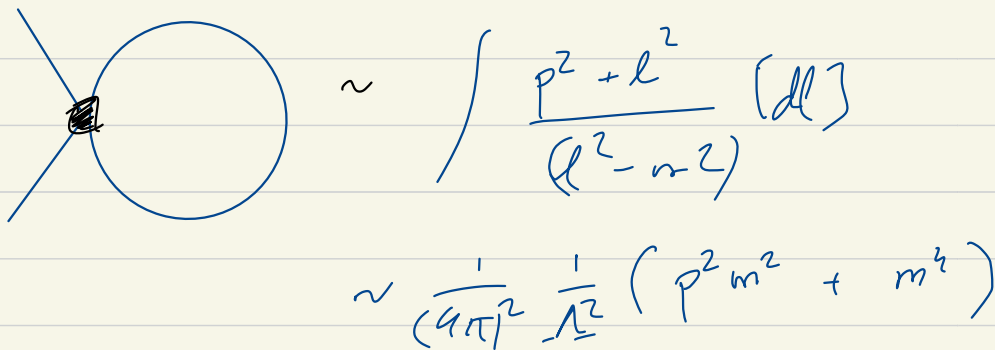 ~ ∫ (p² + l²) / (l² - m²) [dl]
~ 1/(4π)² 1/Λ² (p² m² + m⁴)